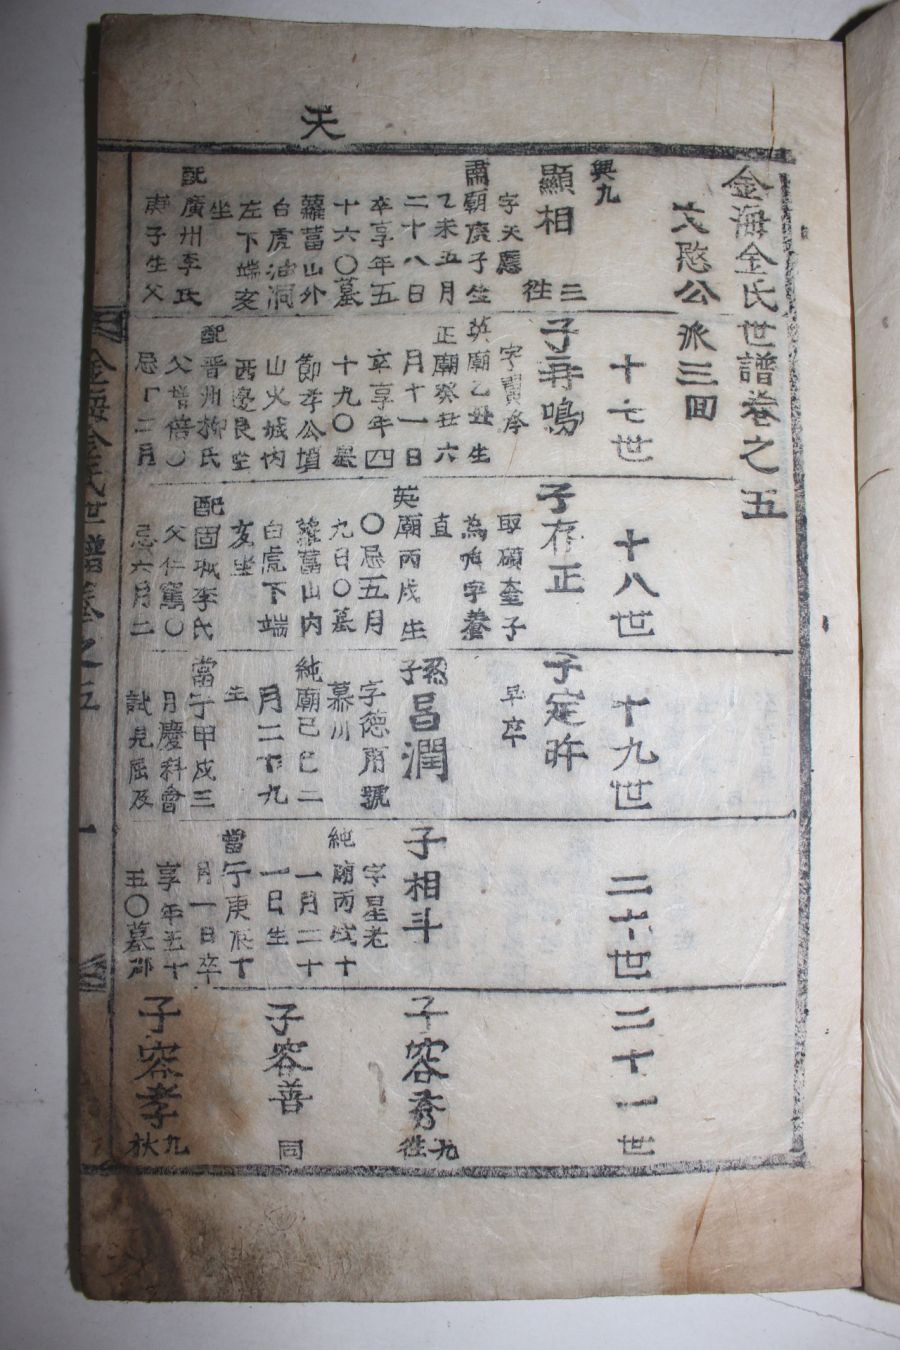 天
金海金氏世譜卷之五
文愍公派三回
十七世
十八世
十九世
二十世
二十一世
興九
顯相
三
徃
字天應
肅廟庚子生
乙未五月
二十八日
卒享年五
十六〇墓
蘿葍山外
白虎油洞
左下端亥
坐
配廣州李氏
庚子生父
子再鳴
英廟乙丑生
正廟癸丑六
月十一日
卒享年四
十九〇墓
節孝公墳
山火城內
西邊艮坐
配晋州柳氏
父增倍〇
忌丁二月
子存正
取碩奎子
為鳴字養
直
英廟丙戌生
〇忌五月
九日〇墓
蘿葍山內
白虎下端
亥坐
配固城李氏
父仁篤〇
忌六月二
子定昨
早卒
子呂潤
字德甫號
慕川
純廟己巳二
月二十九
生
當宁甲戌三
月慶科會
試見屈及
子相斗
字星老
純廟丙戌十
一月二十
一日生
當宁庚辰十
月一日卒
享年五十
五〇墓
子容秀
九
徃
子容善
同
子容孝
九
秋
金海金氏世譜卷之五
一